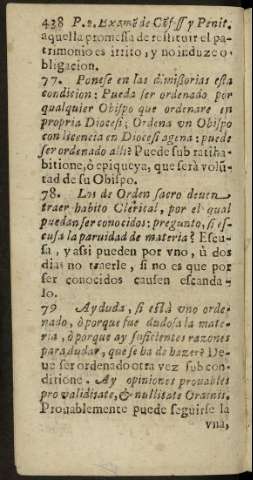 438 P. 2. Exame de Cõf-ss y Penit.
aquella promessa de restituir el pa-
trimonio es irrito, y no induze o-
bligacion.
77. Ponese en las dimissorias esta
condicion: Pueda ser ordenado por
qualquier Obispo que ordenare en
propria Diocesi; Ordena vn Obispo
con licencia en Diocesi agena: puede
ser ordenado alli? Puede sub ratiha
bitione, ò epiqueya, que serà volũ-
tad de su Obispo.
78. Los de Orden sacro deuen
traer habito Clerical, por el qual
puedan ser conocidos: pregunto, si es-
cusa la paruidad de materia? Escu-
sa, y assi pueden por vno, ù dos
dias no traerle, si no es que por
ser conocidos causen escanda-
lo.
79 Ay duda, si està vno orde-
nado, ò porque fue dudosa la mate-
ria, ò porque ay suficientes razones
para dudar, que se ha de hazer? De-
ue ser ordenado otra vez sub con-
ditione. Ay opiniones prouables
pro validitate, & nullitate Ordinis.
Prouablemente puede seguirse la
vna,